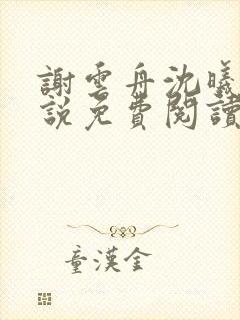 謝雲舟沈曦
說免費閱讀
童漢金